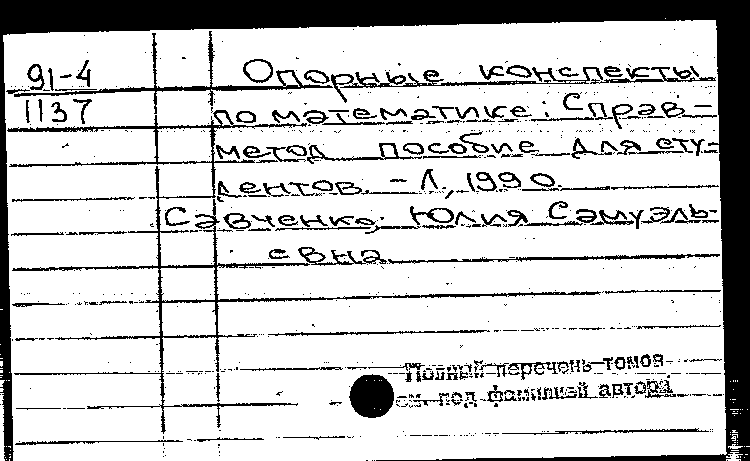 91-4
1137
Опорные конспекты
по математике: Справ-
метод пособие для сту-
дентов. – Л., 1990.
Савченко, Юлия Самуэль-
евна
Полный перечень томов
см. под фамилией автора